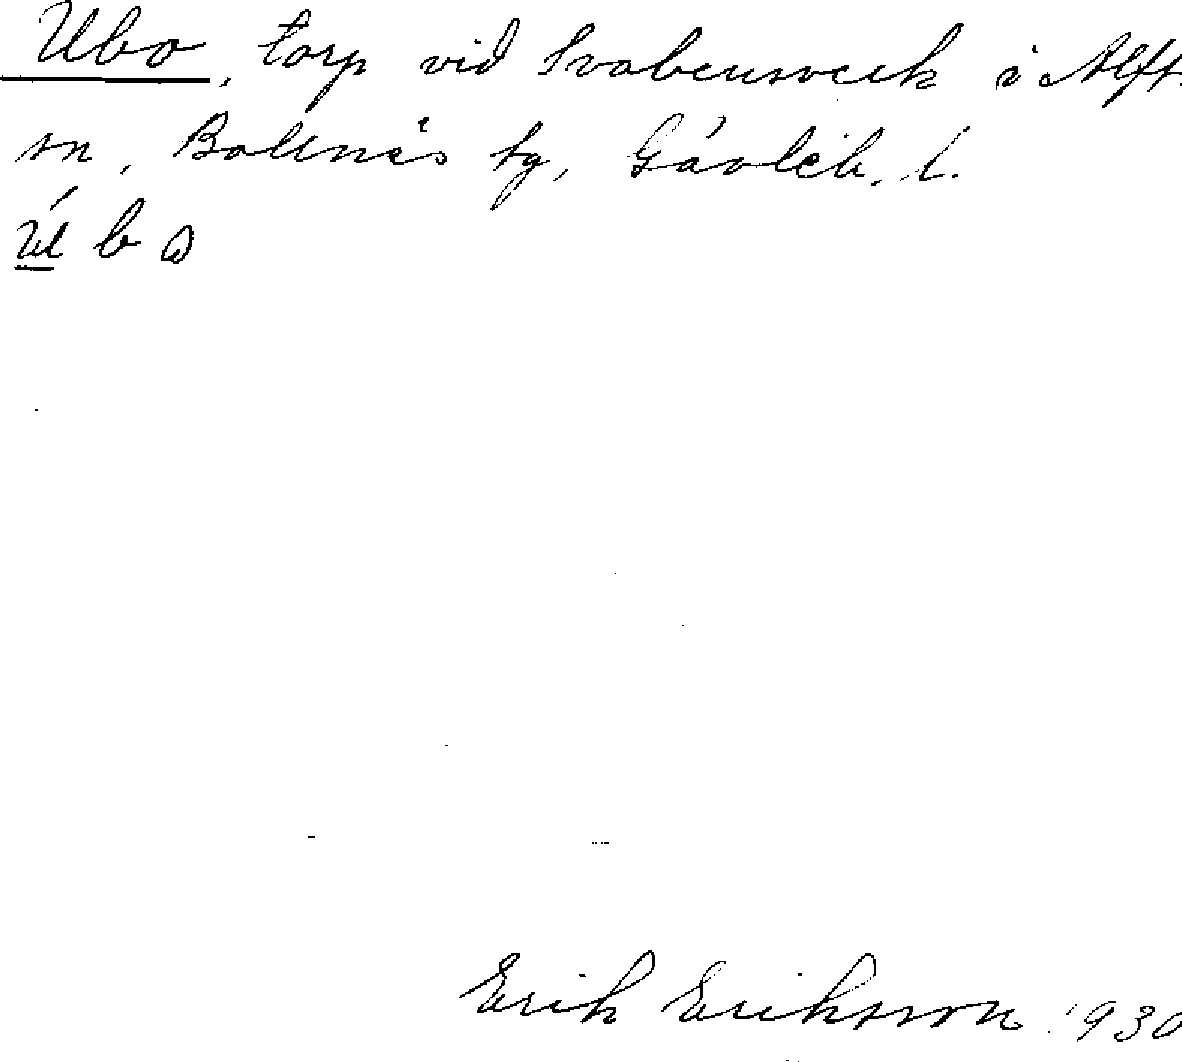 Ubo, torp vid Svabensverk i Alft.
sn, Bollnäs tg, Gävleb. l.
Erik Eriksson 1930